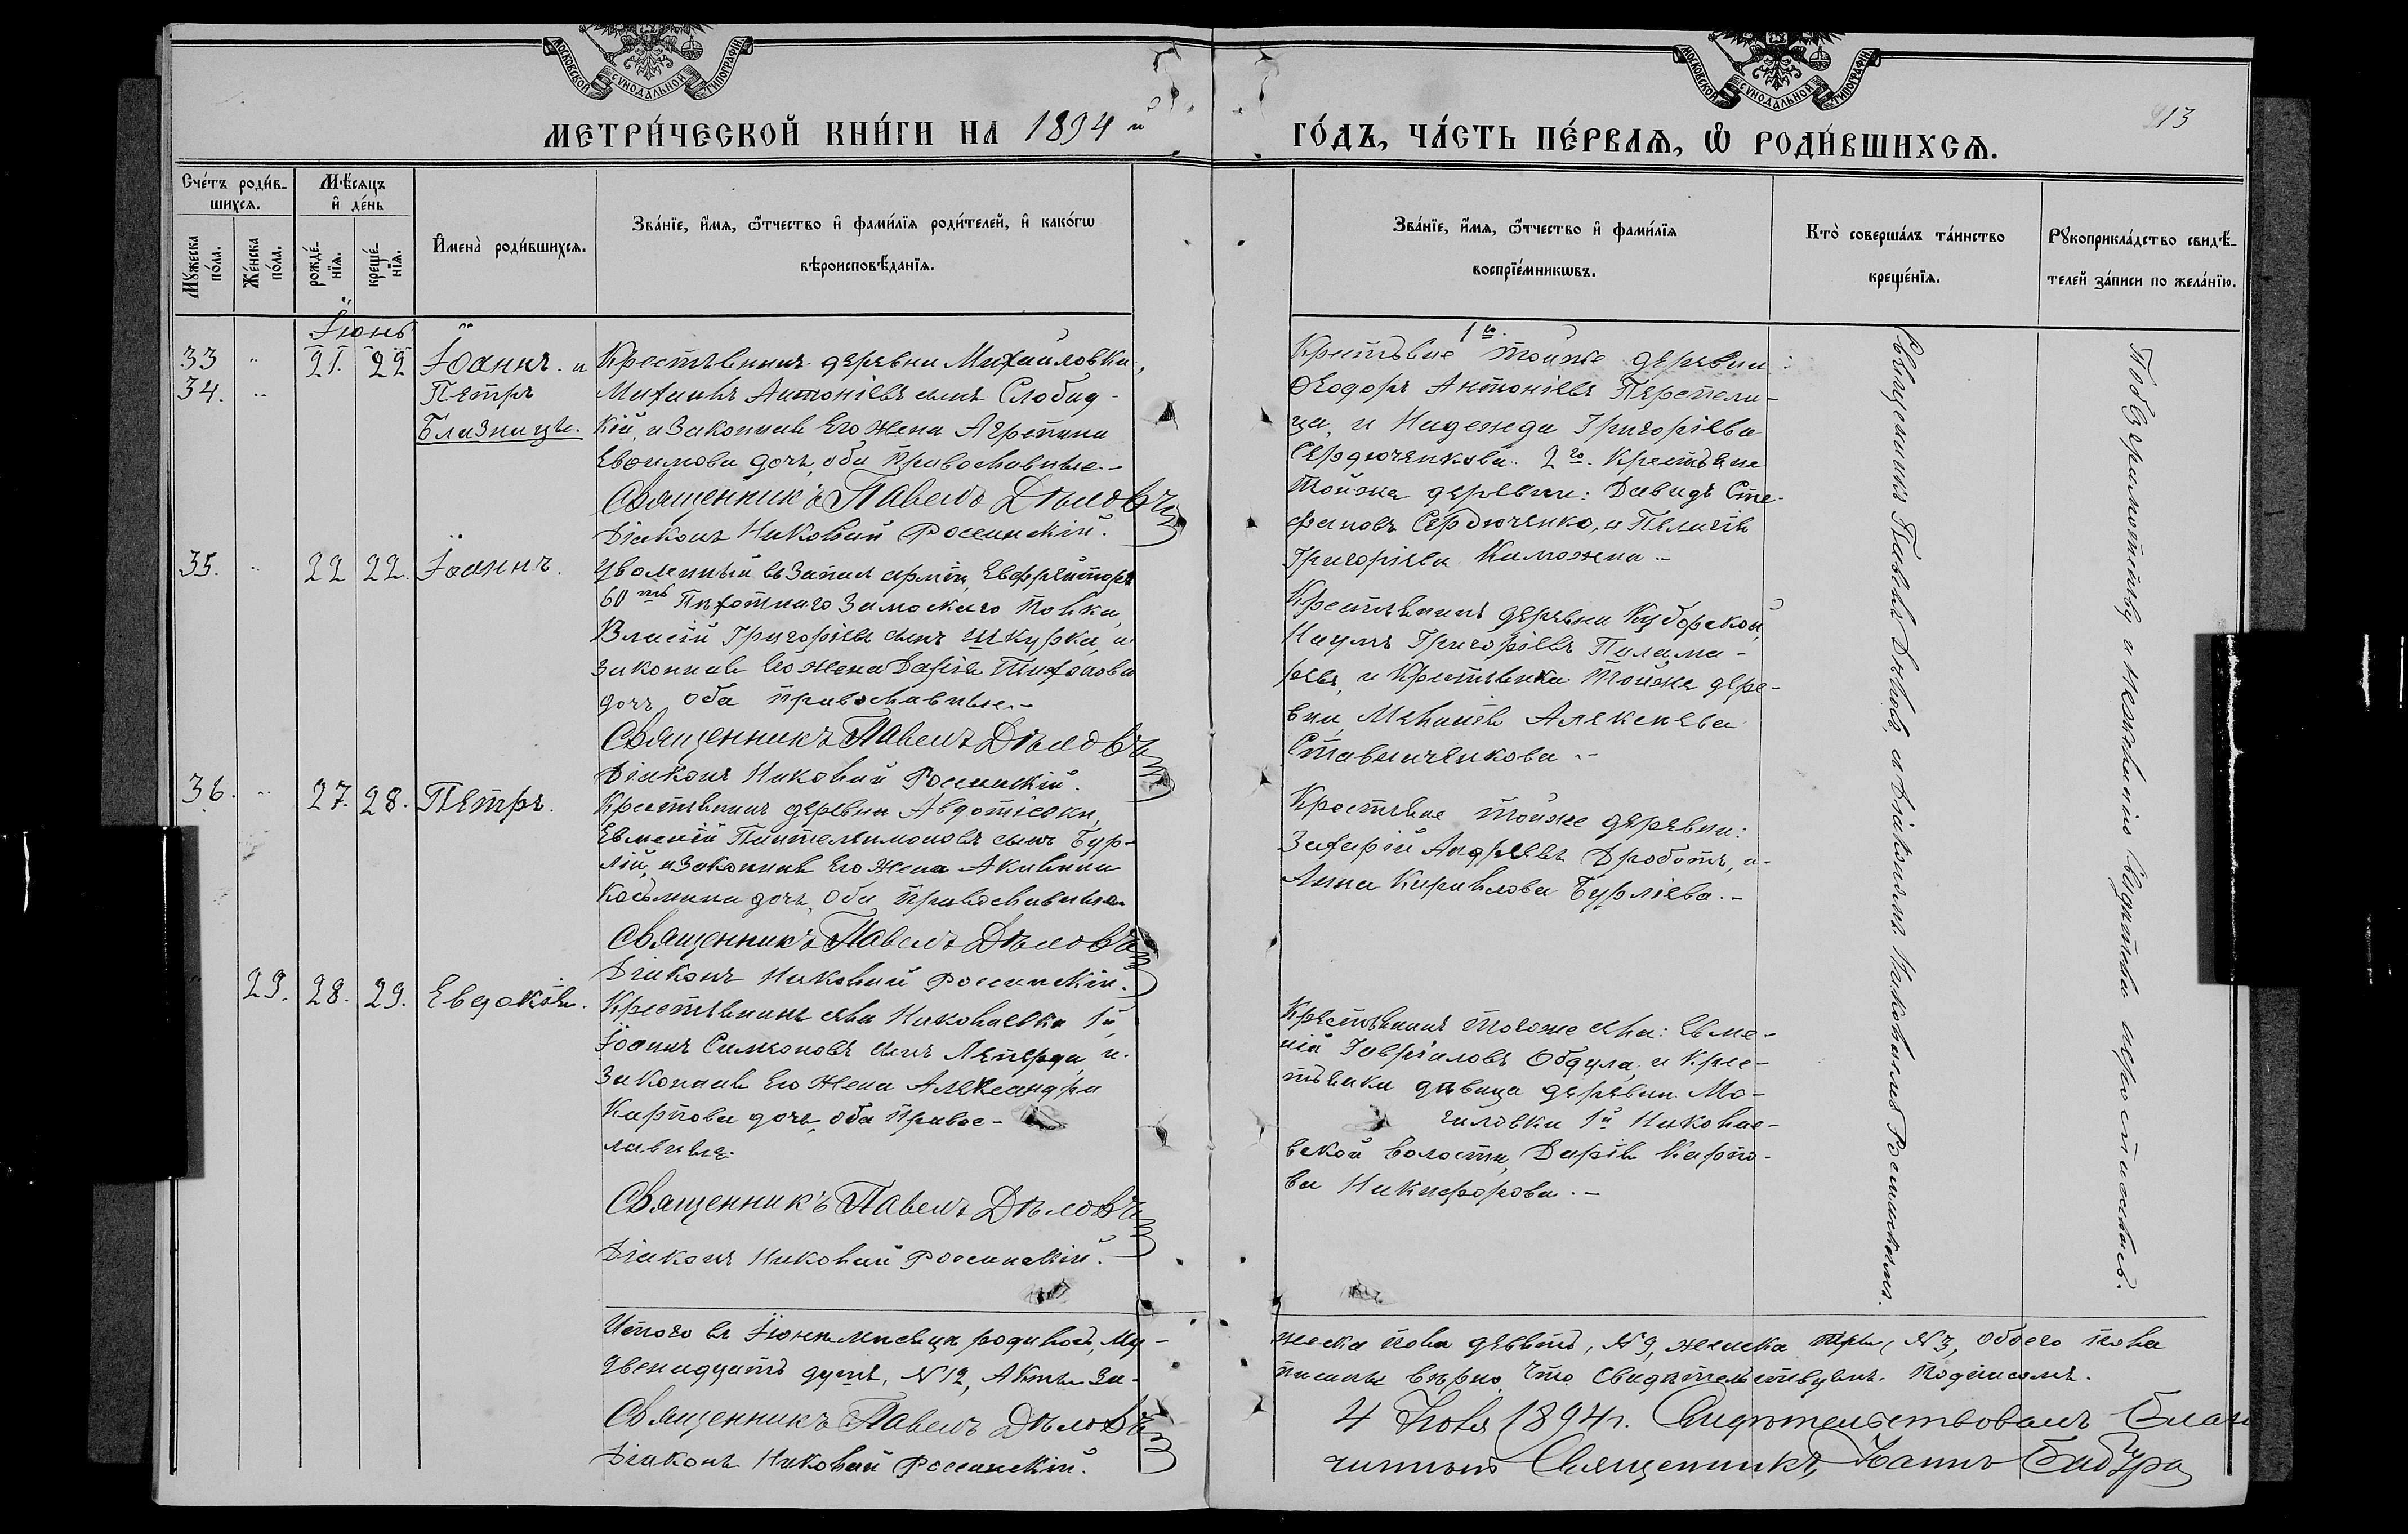 МОСКОВСКОЙ СУНОДАЛЬНОЙ ТИПОГРАФІИ
МОСКОВСКОЙ СУНОДАЛЬНОЙ ТИПОГРАФІИ
МЕТРИ́ЧЕСКОЙ КНИ́ГИ НА 1894 й
ГО́ДЪ, ЧА́СТЬ ПЕ́РВАѦ, Ѡ҆ РОДИ́ВШИХСѦ.
13
Сче́тъ роди́в-
шихсѧ.
Мѣ́сѧцъ
и҆ де́нь
Мꙋ́жеска по́ла.
Же́нска по́ла.
рожде́-нїѧ.
креще́-нїѧ.
И҆мена̀ роди́вшихсѧ.
Зва́нїе, и҆́мѧ, ѻ҆́тчество и҆ фами́лїѧ роди́телей, и҆ како́гѡ
вѣроисповѣ́данїѧ.
Зва́нїе, и҆́мѧ, ѻ҆́тчество и҆ фами́лїѧ
воспрїе́мникѡвъ.
Кто̀ соверша́лъ та́инство
креще́нїѧ.
Рꙋкоприкла́дство свидѣ́-
телей за́писи по жела́нїю.
Іюнь
33 " 21. 22 Іоаннъ и
34. " Петръ
Близнецы.
Крестьянинъ деревни Михайловки,
Михаилъ Антоніевъ сынъ Слобид-
кій, и законная его жена Агрипина
Евѳимова дочь, оба православные.-
Священникъ Павелъ Дѣловъ
Діаконъ Николай Россинскій.
1й.
Крестьяне тойже деревни:
Ѳеодоръ Антоніевъ Перепели-
ца, и Надежда Григоріева
Сердюченкова. 2го. Крестьяне
тойже деревни: Давидъ Сте-
фановъ Сердюченко, и Пелагія
Григоріева
35. " 22 22. Іоаннъ.
Уволенный въ запасъ арміи, Ефрейторъ
60го Пѣхотнаго Замоскаго Полка,
Власій Григоріевъ сынъ Шкурка, и
законная его жена Дарія Тихонова
дочь оба православные.-
Священникъ Павелъ Дѣловъ
Діаконъ Николай Россинскій.
Крестьянинъ деревни Куборской,
Наумъ Григоріевъ Палама-
ревъ, и Крестьянка тойже дере-
вни, Меланія Алексѣева
Ставниченкова.-
36. " 27. 28. Петръ.
Крестьянинъ деревни Авдотіевки,
Евменій Пантелеимоновъ сынъ Бур-
лій, и законная его жена Акилина
Косьмина дочь, оба православные
Священникъ Павелъ Дѣловъ
Діаконъ Николай Россинскій.
Крестьяне тойже деревни:
Захарій Андреевъ Дроботъ, и
Анна Кириллова Бурліева.-
29. 28. 29. Евдокія.
Крестьянинъ села Николаевки 1й,
Іоаннъ Симеоновъ сынъ Леперда, и
законная его жена Александра
Карпова дочь, оба правос-
лавные.
Священникъ Павелъ Дѣловъ
Діаконъ Николай Россинскій.
Крестьянинъ тогоже села: Евме-
ній Гавріиловъ Обдула, и Крес-
тьянка дѣвица деревни Мо-
гиловки 1й Николае-
вской волости, Дарія Карпо-
ва Никифорова.-
Священникъ Павелъ Дѣловъ, съ діакономъ Николаемъ Россинскимъ.
По безграмотству и нежеланію
Итого въ Іюнѣ мѣсяцѣ родилось, Му-
жеска пола девять, N 9, женска три, N 3, обоего пола
двенадцать душъ, N 12, Акты за-
писаны вѣрно, что свидѣтельствуемъ. Подписомъ.
Священникъ Павелъ Дѣловъ
Діаконъ Николай Россинскій.
4 Іюля 1894 г. Свидѣтельствовалъ Благо-
чинный Священникъ, Іоаннъ Бабура